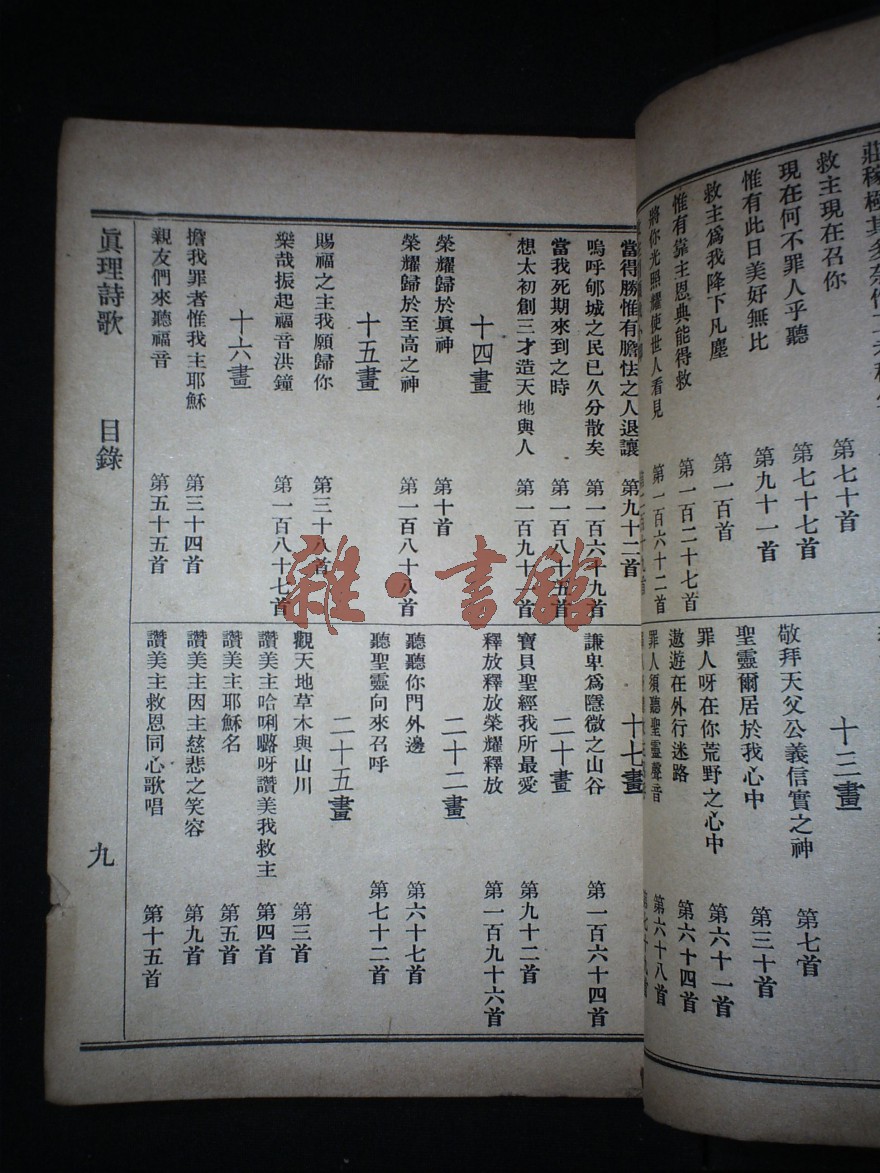 救主現在召你 第七十首
現在何不罪人乎聽 第七十七首
惟有此日美好無比 第九十一首
救主爲我降下凡塵 第一百首
惟有靠主恩典能得救 第一百二十七首
將你光照耀使世人看見 第一百六十二首
十三畫
敬拜天父公義信實之神 第七首
聖靈爾居於我心中 第三十首
罪人呀在你荒野之心中 第六十一首
遨遊在外行迷路 第六十四首
罪人須聽聖靈聲音 第六十八首
當得勝惟有膽怯之人退讓 第九十二首
嗚呼郇城之民已久分散矣 第一百六十九首
當我死期來到之時 第一百八十五首
想太初創三才造天地與人 第一百九十首
十四畫
榮耀歸於眞神 第十首
榮耀歸於至高之神 第一百八十八首
十五畫
賜福之主我願歸你 第三十八首
樂哉振起福音洪鐘 第一百八十七首
十六畫
擔我罪者惟我主耶穌 第三十四首
親友們來聽福音 第五十五首
十七畫
謙卑爲隱微之山谷 第一百六十四首
二十畫
寶貝聖經我所最愛 第九十二首
釋放釋放榮耀釋放 第一百九十六首
二十二畫
聽聽你門外邊 第六十七首
聽聖靈向來召呼 第七十二首
二十五畫
觀天地草木與山川 第三首
讚美主哈唎嚕呀讚美我救主 第四首
讚美主耶穌名 第五首
讚美主因主慈悲之笑容 第九首
讚美主救恩同心歌唱 第十五首
眞理詩歌 目錄 九
雜·書館